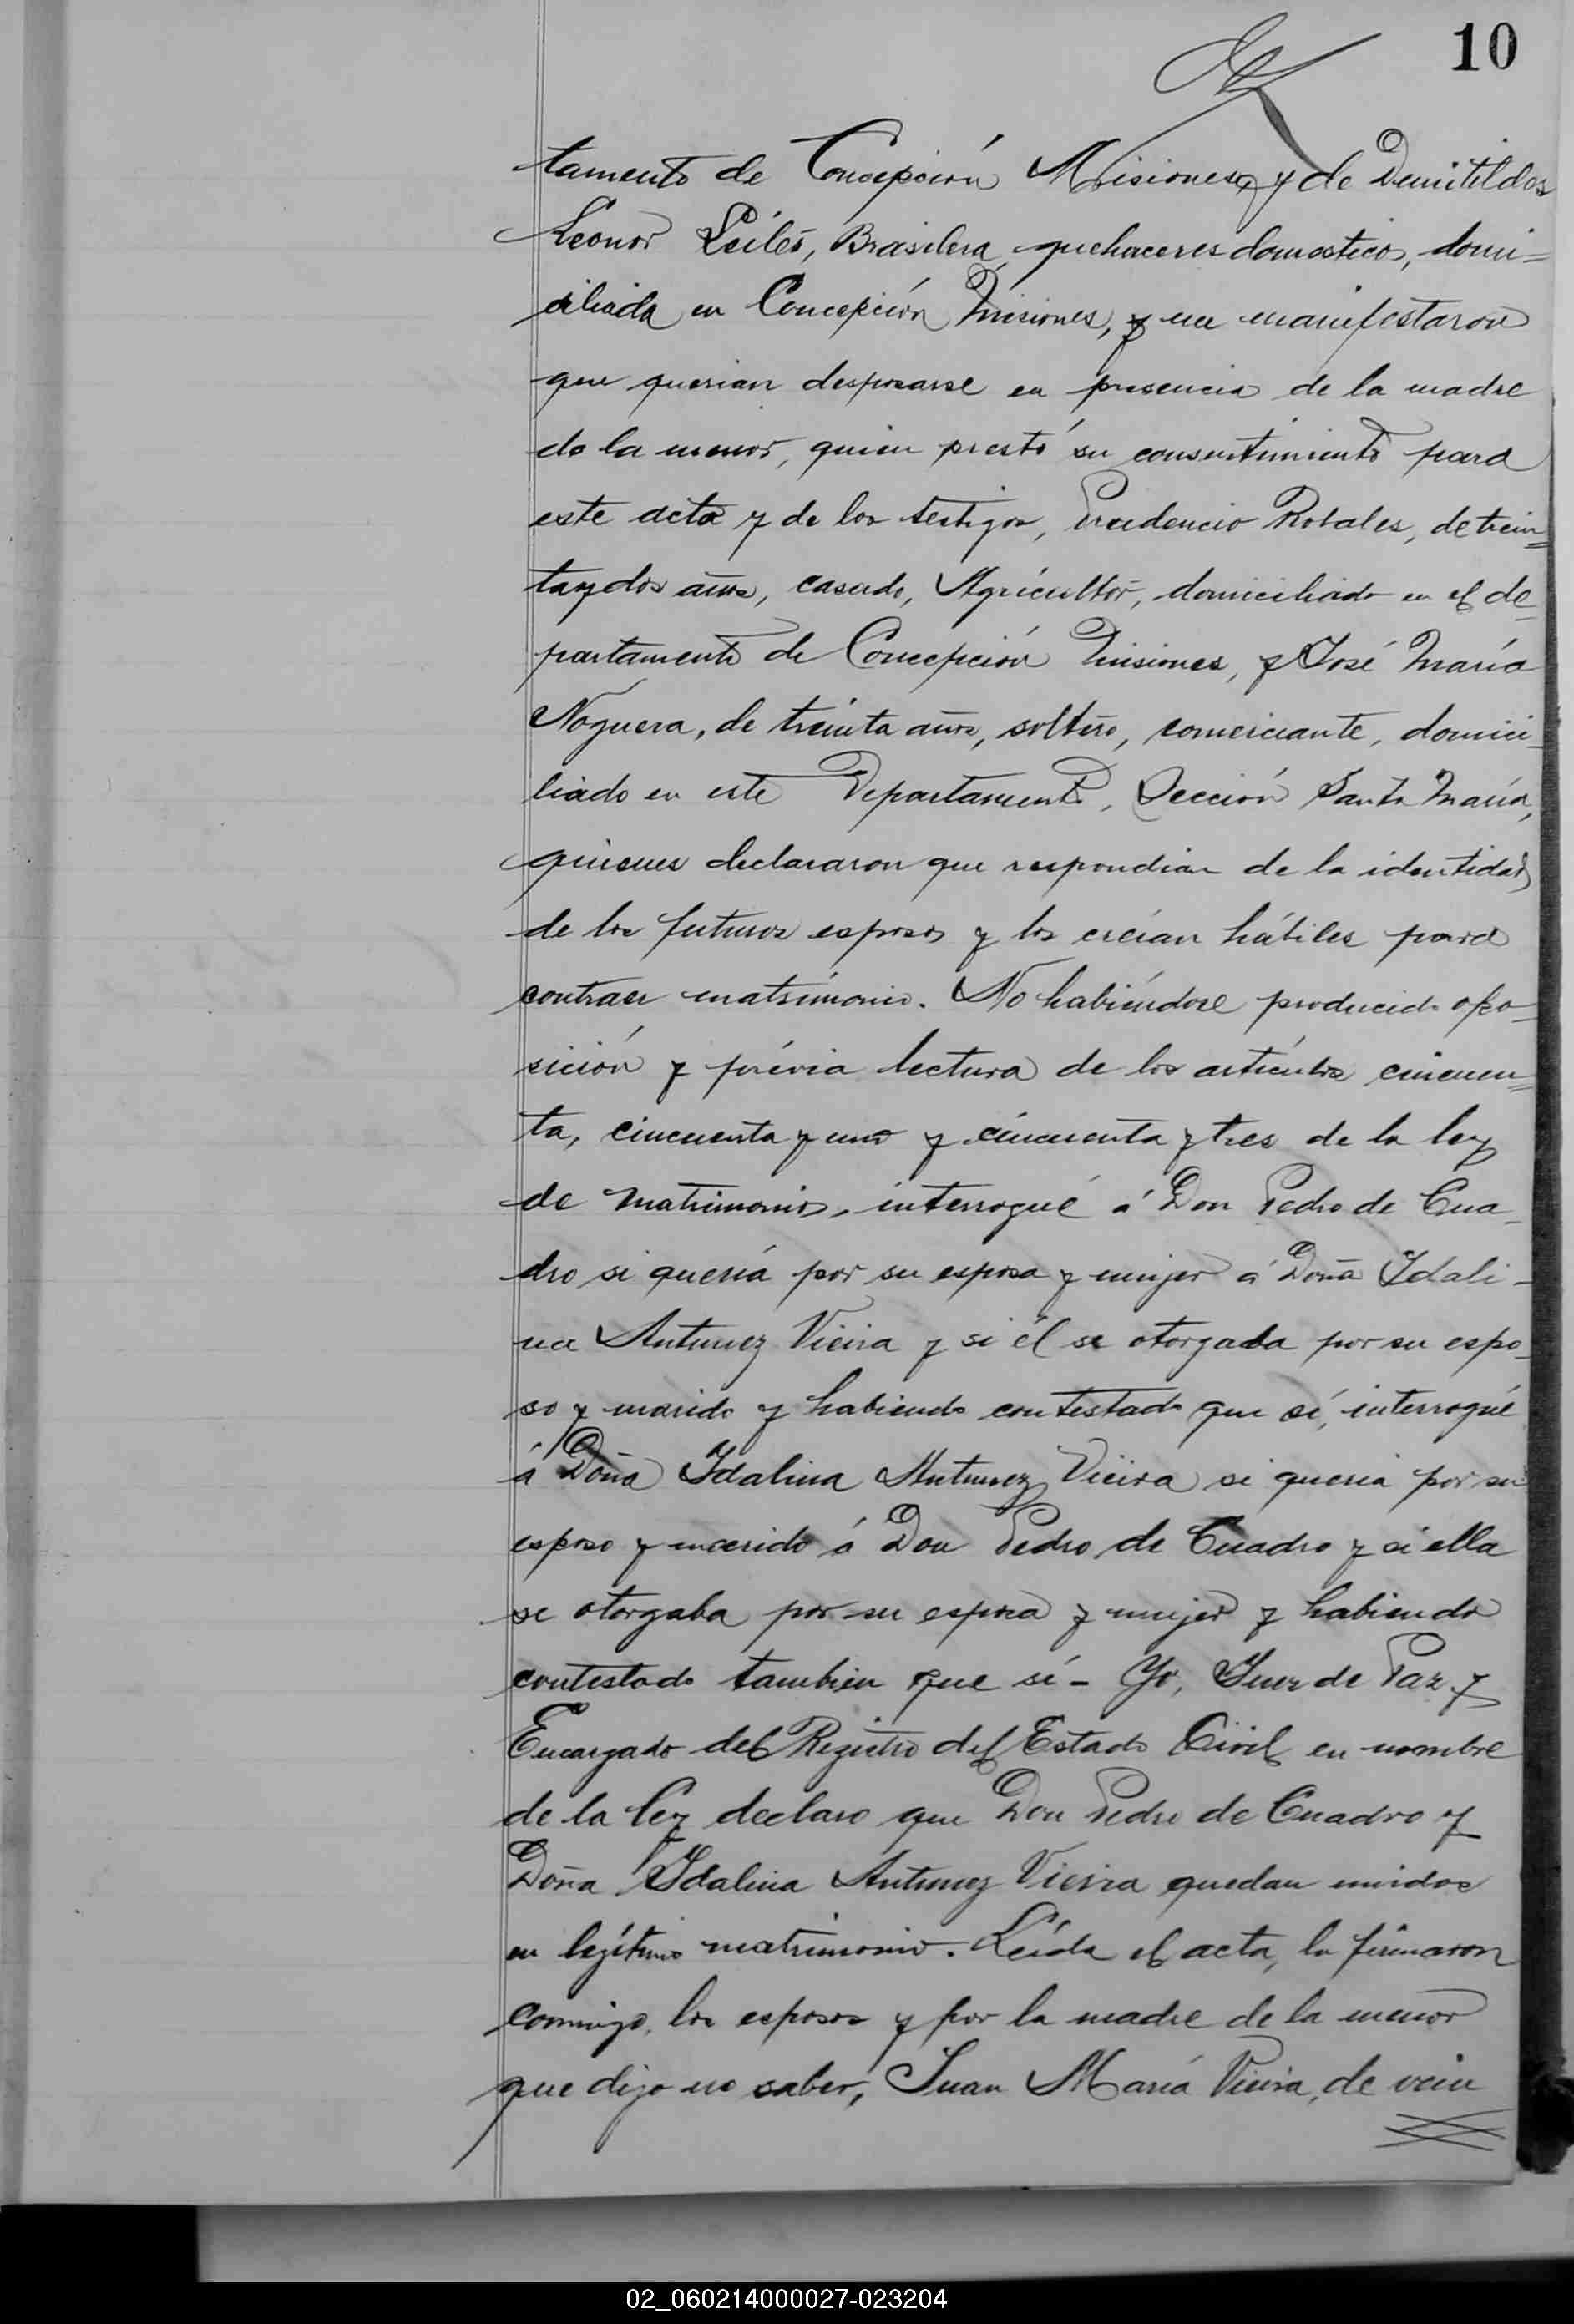 10
tamento de Concepción Misiones, y de Demitildes
Leonor Leiles, Brasilera, quehaceres domesticos, domi=
ciliada en Concepción Misiones, y me manifestaron
que querian desposarse en presencia de la madre
de la menor, quien prestó su consentimiento para
este acto y de los testigos, Prudencio Robales, de trein=
tay dos años, casado, Agricultor, domiciliado en el de-
partamento de Concepción Misiones, y José María
Noguera, de treinta años, soltero, comerciante, domici-
liado en este Departamento, Sección Santa María,
quienes declararon que respondian de la identidad
de los futuros esposos y los creían hábiles para
contraer matrimonio. No habiéndose producido opo-
sición y prévia lectura de los artículos cincuen=
ta, cincuenta y uno y cincuenta y tres de la ley
de matrimonio, interrogué á Don Pedro de Cua-
dro si quería por su esposa y mujer á Doña Idali-
na Antunez Vieira y si él se otorgaba por su espo-
so y marido y habiendo contestado que sí, interrogué
á Doña Idalina Antunez Vieira si queria por su
esposo y marido á Don Pedro de Cuadro y si ella
se otorgaba por su esposa y mujer y habiendo
contestado tambien que sí - Yo, Juez de Paz y
Encargado del Registro del Estado Civil en nombre
de la ley declaro que Don Pedro de Cuadro y
Doña Idalina Antunez Vieira quedan unidos
en legítimo matrimonio. Leída el acta, la firmaron
conmigo, los esposos y por la madre de la menor
que dijo no saber, Juan María Vieira, de vein
02_060214000027-023204